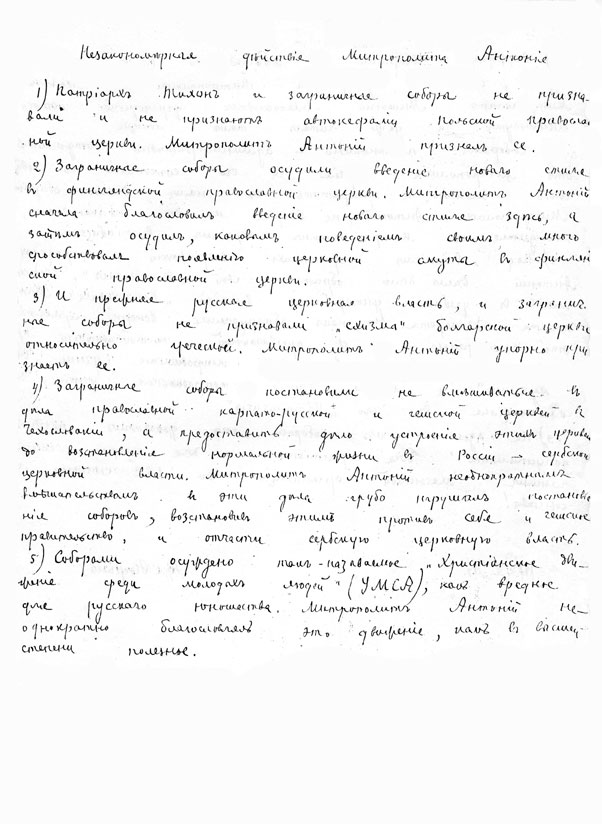 Незакономѣрныя дѣйствія Митрополита Антонія
1) Патріархъ Тихонъ и заграничные соборы не призна-
вали и не признаютъ автокефаліи польской правосла
ной церкви. Митрополитъ Антоній призналъ ее.
2) Заграничные соборы осудили введеніе новаго стиля
въ финляндской православной церкви. Митрополитъ Антоній
сначала благословилъ введеніе новаго стиля здѣсь, а
затѣмъ осудилъ, каковымъ поведеніемъ своимъ много
способствовалъ появленію церковной смуты въ финлян
ской православной церкви.
3) И прежняя русская церковная власть, и загранич.
ные соборы не признавали "схизма" болгарской церкви
относительно греческой. Митрополитъ Антоній упорно при
знаетъ ее.
4) Заграничные соборы постановили не вмѣшиваться въ
дѣла православной карпато-русской и чешской церквей въ
Чехословакіи, а предоставить дѣло устроенія этихъ церквей
до возстановленія нормальной жизни въ Россіи – сербской
церковной власти. Митрополитъ Антоній неоднократнымъ
вмѣшательствомъ въ эти дѣла грубо нарушилъ постановле
нія соборовъ, возстановивъ этимъ противъ себя и чешское
правительство, и отчасти сербскую церковную власть.
5) Соборами осуждено такъ-называемое "Христіанское дви-
женіе среди молодыхъ людей" (УМСА), какъ вредное
для русскаго юношества. Митрополитъ Антоній не-
однократно благословлялъ это движеніе, какъ въ высшей
степени полезное.